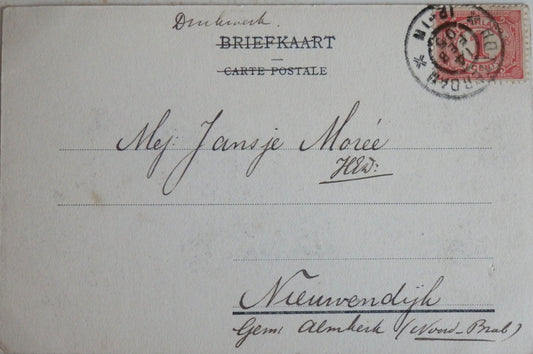 Drukwerk.
BRIEFKAART
CARTE POSTALE
Mej. Jansje Morée
HEd:
Nieuwendijk
Gem Almkerk (Noord-Brab)